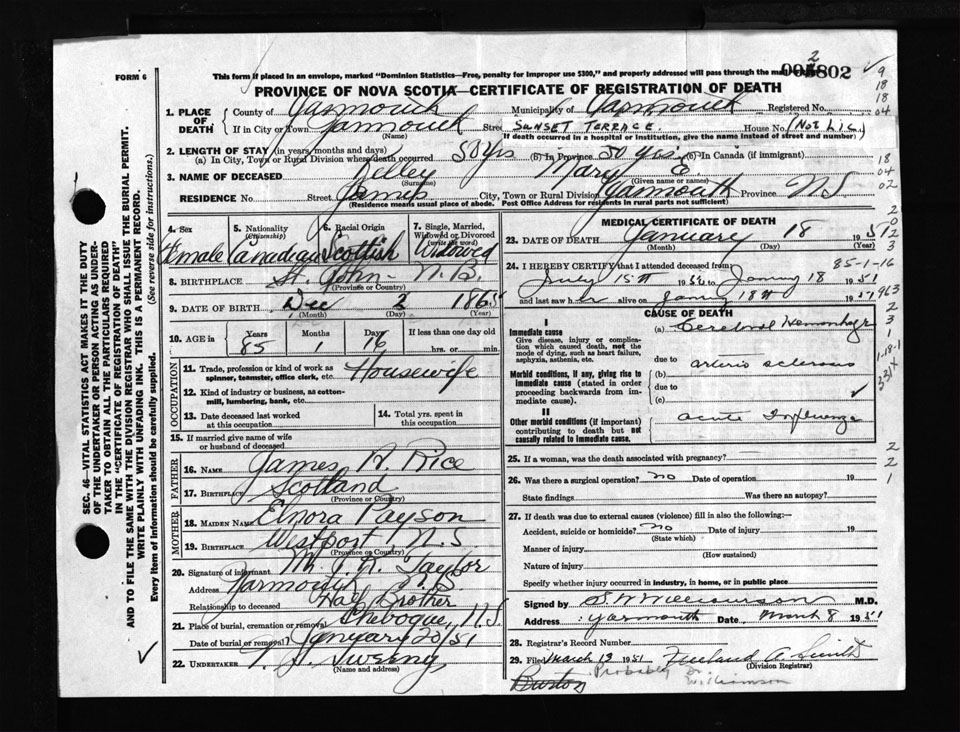 FORM 6
This form if placed in an envelope, marked "Dominion Statistics—Free, penalty for improper use $300," and properly addressed will pass through the mail
PROVINCE OF NOVA SCOTIA—CERTIFICATE OF REGISTRATION OF DEATH
1. PLACE OF DEATH County of Yarmouth Municipality of Yarmouth Registered No.
If in City or Town Yarmouth (Name) Street SUNSET TERRACE House No. (Not Lic.)
(If death occurred in a hospital or institution, give the name instead of street and number)
2. LENGTH OF STAY (in years, months and days)
(a) In City, Town or Rural Division where death occurred 50 yrs (b) In Province 50 yrs (c) In Canada (if immigrant)
3. NAME OF DECEASED Kelley (Surname) Mary E. (Given name or names)
RESIDENCE No. Street City, Town or Rural Division Yarmouth Province N S
(Residence means usual place of abode. Post Office Address for residents in rural parts not sufficient)
4. Sex Female
5. Nationality (Citizenship) Canadian
6. Racial Origin Scottish
7. Single, Married, Widowed or Divorced (write the word) Widowed
8. BIRTHPLACE St. John - N. B.
(Province or Country)
9. DATE OF BIRTH Dec (Month) 2 (Day) 1865 (Year)
10. AGE in Years 85 Months 1 Days 16 If less than one day old hrs. or min.
OCCUPATION
11. Trade, profession or kind of work as spinner, teamster, office clerk, etc. Housewife
12. Kind of industry or business, as cotton-mill, lumbering, bank, etc.
13. Date deceased last worked at this occupation
14. Total yrs. spent in this occupation
15. If married give name of wife or husband of deceased
FATHER
16. NAME James A. Rice
17. BIRTHPLACE Scotland
(Province or Country)
MOTHER
18. MAIDEN NAME Elnora Payson
19. BIRTHPLACE Westport, N. S
(Province or Country)
20. Signature of informant Mr. J. R. Taylor
Address Yarmouth
Relationship to deceased Half Brother
21. Place of burial, cremation or removal Chebogue, N. S.
Date of burial or removal January 20/51
22. UNDERTAKER Sweeny
MEDICAL CERTIFICATE OF DEATH
23. DATE OF DEATH January (Month) 18 (Day) 1951 (Year)
85-1-16
24. I HEREBY CERTIFY that I attended deceased from:
July 15th 1950 to January 18 1951
and last saw her alive on January 18th 1951
CAUSE OF DEATH
I
Immediate cause (a) Cerebral Hemorrhage
Give disease, injury or complication which caused death, not the mode of dying, such as heart failure, asphyxia, asthenia, etc.
due to
Morbid conditions, if any, giving rise to immediate cause (stated in order proceeding backwards from immediate cause). (b) arterio sclerosis
due to
(c)
II
Other morbid conditions (if important) contributing to death but not causally related to immediate cause. acute Influenza
25. If a woman, was the death associated with pregnancy?
26. Was there a surgical operation? no Date of operation 19
State findings Was there an autopsy?
27. If death was due to external causes (violence) fill in also the following:—
Accident, suicide or homicide? no (State which) Date of injury 19
Manner of injury (How sustained)
Nature of injury
Specify whether injury occurred in industry, in home, or in public place
Signed by S. W. Williamson M.D.
Address: Yarmouth Date March 8 1951
28. Registrar's Record Number
29. Filed March 13 1951 A. Smith
(Division Registrar)
Burton Probably Dr. Williamson
SEC. 46—VITAL STATISTICS ACT MAKES IT THE DUTY
OF THE UNDERTAKER OR PERSON ACTING AS UNDER-
TAKER TO OBTAIN ALL THE PARTICULARS REQUIRED
IN THE "CERTIFICATE OF REGISTRATION OF DEATH"
AND TO FILE THE SAME WITH THE DIVISION REGISTRAR WHO SHALL ISSUE THE BURIAL PERMIT.
WRITE PLAINLY WITH UNFADING INK. THIS IS A PERMANENT RECORD.
Every item of information should be carefully supplied. (See reverse side for instructions.)